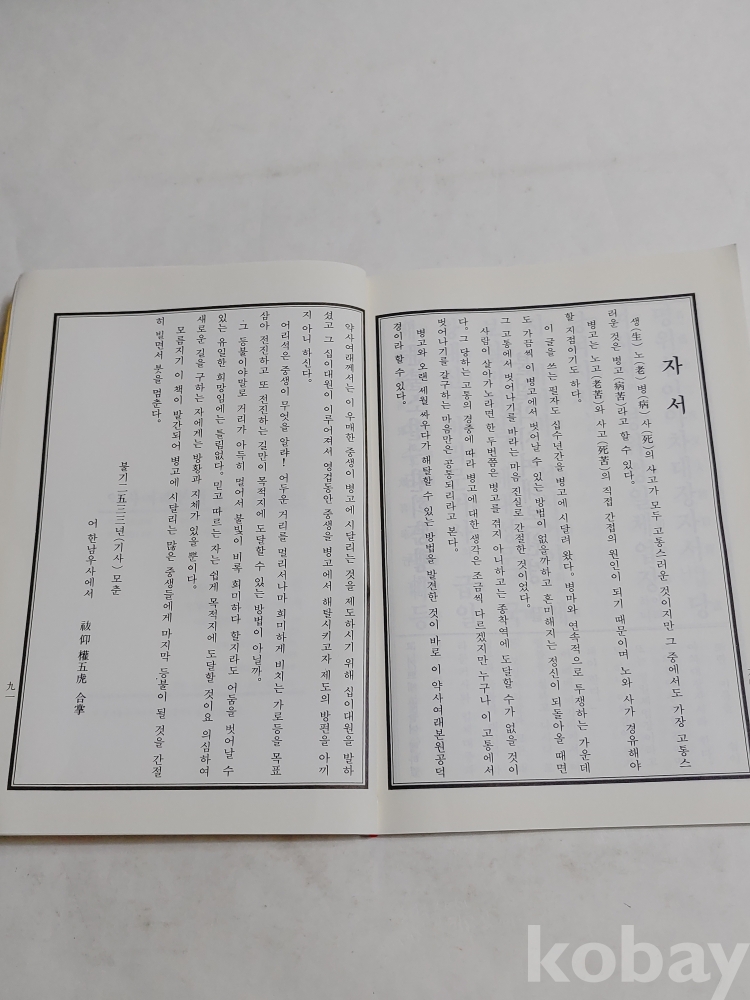 자서
생(生)노(老)병(病)사(死)의 사고가 모두 고통스러운 것이지만 그 중에서도 가장 고통스
러운 것은 병고(病苦)라고 할 수 있다.
병고는 노고(老苦)와 사고(死苦)의 직접 간접의 원인이 되기 때문이며 노와 사가 경유해야
할 지점이기도 하다.
이 글을 쓰는 필자도 십수년간을 병고에 시달려 왔다. 병마와 연속적으로 투쟁하는 가운데
도 가끔씩 이 병고에서 벗어날 수 있는 방법이 없을까하고 혼미해지는 정신이 되돌아올 때면
그 고통에서 벗어나기를 바라는 마음 진실로 간절한 것이었다.
사람이 살아가노라면 한 두번쯤은 병고를 겪지 아니하고는 종착역에 도달할 수가 없을 것이
다. 그 당하는 고통의 경중에 따라 병고에 대한 생각은 조금씩 다르겠지만 누구나 이 고통에서
벗어나기를 갈구하는 마음만은 공통되리라고 본다.
병고와 오랜 세월 싸우다가 해탈할 수 있는 방법을 발견한 것이 바로 이 약사여래본원공덕
경이라 할 수 있다.
약사여래께서는 이 우매한 중생이 병고에 시달리는 것을 제도하시기 위해 십이대원을 발하
셨고 그 십이대원이 이루어져서 영겁동안 중생을 병고에서 해탈시키고자 제도의 방편을 아끼
지 아니 하신다.
어리석은 중생이 무엇을 알랴! 어두운 거리를 멀리서나마 희미하게 비치는 가로등을 목표
삼아 전진하고 또 전진하는 길만이 목적지에 도달할 수 있는 방법이 아닐까.
그 등불이야말로 거리가 아득히 멀어서 불빛이 비록 희미하다 할지라도 어둠을 벗어날 수
있는 유일한 희망임에는 틀림없다. 믿고 따르는 자는 쉽게 목적지에 도달할 것이요 의심하여
새로운 길을 구하는 자에게는 방황과 지체가 있을 뿐이다.
모름지기 이 책이 발간되어 병고에 시달리는 많은 중생들에게 마지막 등불이 될 것을 간절
히 빌면서 붓을 멈춘다.
불기二五三三년(기사) 모춘
어 한남우사에서
祓仰 權五虎 合掌
九一
kobay